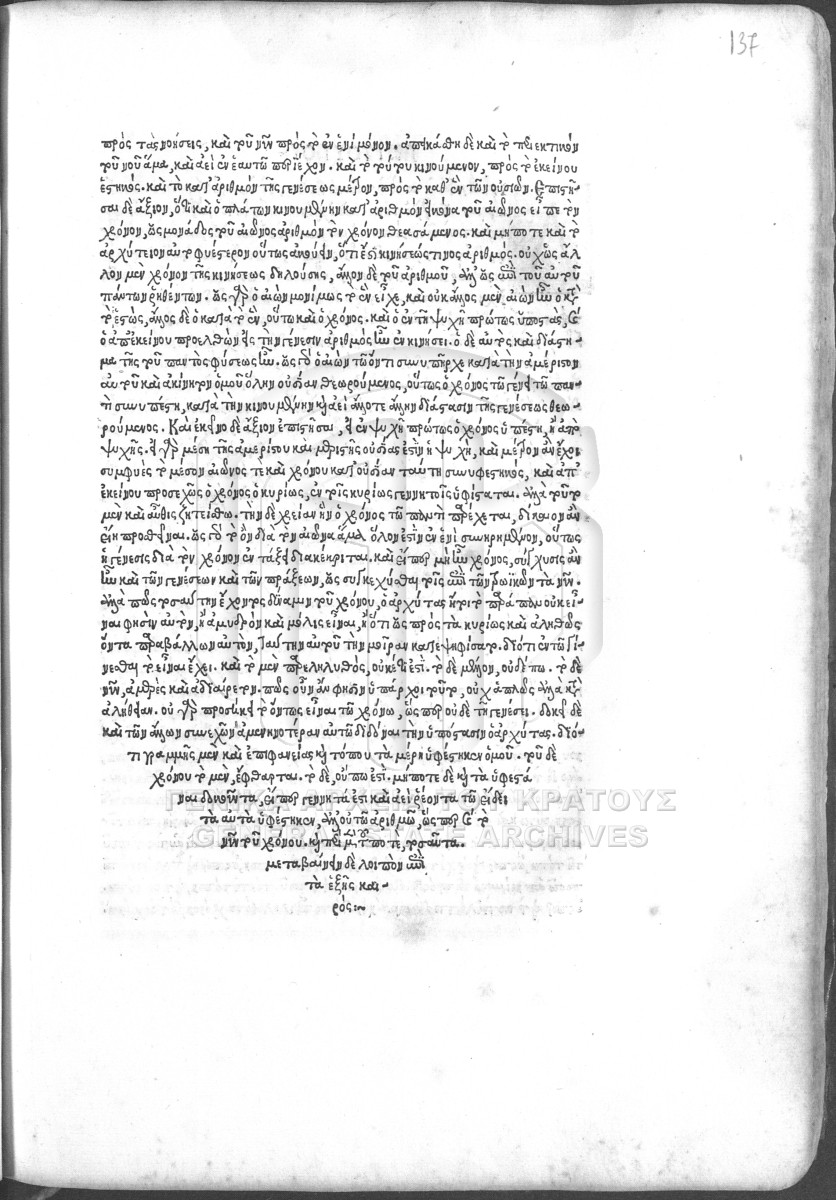 137
πρὸς τὰς νοήσεις, καὶ τοῦ νῦν πρὸς τὸ ἐν ἑνὶ μόνον. ἀπῃκάσθη δὲ καὶ τὸ
τοῦ νοῦ ἅμα, καὶ ἀεὶ ἐν ἑαυτῷ περιέχον. καὶ τὸ τούτου κινούμενον, πρὸς τὸ ἐκείνου
ἑστηκός. καὶ τὸ κατ' ἀριθμὸν τῆς γενέσεως μέτρον, πρὸς τὸ καθ' ἓν τῶν οὐσιῶν. ἐπιστῆ-
σαι δὲ ἄξιον, ὅτι καὶ ὁ πλάτων κινουμένην κατ' ἀριθμὸν εἰκόνα τοῦ αἰῶνος εἶπε τὸν
χρόνον, ὡς μονάδος τοῦ αἰῶνος ἀριθμὸν τὸν χρόνον θεασάμενος. καὶ μήποτε καὶ τὸ
ἀρχύτειον αὐτοφυέστερον οὕτως ἀκούειν, ὅτι ἐστὶ κινήσεώς τινος ἀριθμός. οὐχ ὡς ἄλ-
λου μὲν χρόνου τῆς κινήσεως δηλούσης, ἄλλου δὲ τοῦ ἀριθμοῦ, ἀλλ' ὡς ἐπὶ τοῦ αὐτοῦ
πάντων ῥηθέντων. ὡς γὰρ ὁ αἰὼν μονίμως τὸ ἓν εἶχε, καὶ οὐκ ἄλλος μὲν αἰὼν ἦν ὁ κατὰ
τὸ ἑστὼς, ἄλλος δὲ ὁ κατὰ τὸ ἓν, οὕτω καὶ ὁ χρόνος. καὶ ὁ ἐν τῇ ψυχῇ πρώτως ὑποστὰς, καὶ
ὁ ἀπ' ἐκείνου προελθὼν εἰς τὴν γένεσιν ἀριθμὸς ἦν ἐν κινήσει. ὁ δὲ αὐτὸς καὶ διάστη-
μα τῆς τοῦ παντὸς φύσεως ἦν. ὡς γὰρ ὁ αἰὼν τῷ ὄντι συνυπῆρχε κατὰ τὴν ἀμέριστον
αὐτοῦ καὶ ἀκίνητον ὁμοῦ ὅλην οὐσίαν θεωρούμενος, οὕτως ὁ χρόνος τῷ γενητῷ παν-
τὶ συνυπέστη, κατὰ τὴν κινουμένην καὶ ἀεὶ ἄλλοτε ἄλλην διάστασιν τῆς γενέσεως θεω-
ρούμενος. Καὶ ἐκεῖνο δὲ ἄξιον ἐπιστῆσαι, εἰ ἐν ψυχῇ πρώτως ὁ χρόνος ὑπέστη, ἢ ἀπὸ
ψυχῆς. εἰ γὰρ μέση τῆς ἀμερίστου καὶ μεριστῆς οὐσίας ἐστὶν ἡ ψυχὴ, καὶ μέτρον ἂν ἔχοι
συμφυὲς τὸ μέσον αἰῶνός τε καὶ χρόνου κατ' οὐσίαν ταύτῃ συνυφεστηκὸς, καὶ ἀπ'
ἐκείνου προσεχῶς ὁ χρόνος ὁ κυρίως, ἐν τοῖς κυρίως γεννητοῖς ὑφίσταται. ἀλλὰ τοῦτο
μὲν καὶ αὖθις ζητείσθω. τὴν δὲ χρείαν ἣν ὁ χρόνος τῷ παντὶ παρέχεται, δίκαιον ἂν
εἴη προσθεῖναι. ὡς γὰρ τὸ ὂν διὰ τὸν αἰῶνα ἅμα ὅλον ἐστὶν ἐν ἑνὶ συνῃρημένον, οὕτως
ἡ γένεσις διὰ τὸν χρόνον ἐν τάξει διακέκριται. καὶ εἴπερ μὴ ἦν χρόνος, σύγχυσις ἂν
ἦν καὶ τῶν γενέσεων καὶ τῶν πράξεων, ὡς συγκεχύσθαι τοῖς ἐπὶ τῶν τρωϊκῶν τὰ νῦν.
ἀλλὰ πῶς τοσαύτην ἔχοντος δύναμιν τοῦ χρόνου, ὁ ἀρχύτας ἤτοι τὸ παράπαν οὐκ εἶ-
ναι φησὶν αὐτὸν, ἢ ἀμυδρὸν καὶ μόλις εἶναι, ἢ ὅτι ὡς πρὸς τὰ κυρίως καὶ ἀληθῶς
ὄντα παραβάλλων αὐτὸν, ταύτην αὐτοῦ τὴν μοῖραν κατεψηφίσατο. διότι ἐν τῷ γί-
νεσθαι τὸ εἶναι ἔχει. καὶ τὸ μὲν παρεληλυθὸς, οὐκέτι ἐστί. τὸ δὲ μέλλον, οὐδέπω. τὸ δὲ
νῦν, ἀμερὲς καὶ ἀδιαίρετον. πῶς οὖν ἂν φησὶν ὑπάρχοι τοῦτο, οὐχ ἁπλῶς ἀλλὰ κατὰ
ἀλήθειαν. οὐ γὰρ προσήκει τὸ ὄντως εἶναι τῷ χρόνῳ, ὥσπερ οὐδὲ τῇ γενέσει. δοκεῖ δὲ
καὶ τῶν ἄλλων συνεχῶν ἀμενηνοτέραν αὐτῷ διδόναι τὴν ὑπόστασιν ὁ ἀρχύτας. διό-
τι γραμμῆς μὲν καὶ ἐπιφανείας καὶ τόπου τὰ μέρη ὑφέστηκεν ὁμοῦ. τοῦ δὲ
χρόνου τὸ μὲν, ἔφθαρται. τὸ δὲ, οὔπω ἐστί. μήποτε δὲ καὶ τὰ ὑφεστά-
ναι δοκοῦντα, εἴπερ γεννητά ἐστι καὶ ἀεὶ ῥέοντα τῷ εἴδει
τὰ αὐτὰ ὑφέστηκεν, ἀλλ' οὐ τῷ ἀριθμῷ, ὥσπερ καὶ τὸ
νῦν τοῦ χρόνου. καὶ περὶ μὲν τοῦ ποτὲ, τοσαῦτα.
μεταβαίνειν δὲ λοιπὸν ἐπὶ
τὰ ἑξῆς και-
ρός:~
ΓΕΝΙΚΑ ΑΡΧΕΙΑ ΤΟΥ ΚΡΑΤΟΥΣ
GENERAL STATE ARCHIVES